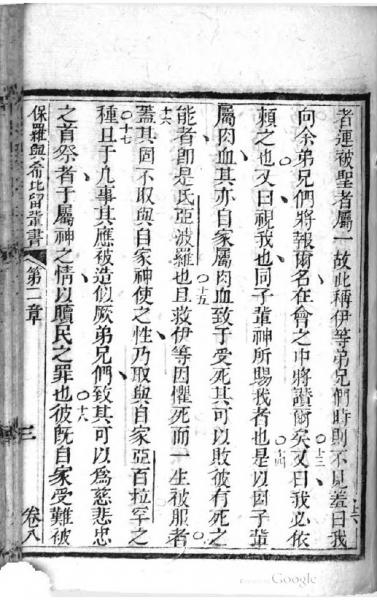 者連被聖者屬一故此稱伊等弟兄們時則不見羞曰我
向余弟兄們將報爾名在會之中將讚爾矣又曰我必依
賴之也又曰視我也同子輩神所賜我者也是以因子輩
屬肉血其亦自家屬肉血致于受死其可以敗彼有死之
能者卽是氏亞波羅也且救伊等因懼死而一生被服者
蓋其固不取與自家神使之性乃取與自家亞百拉罕之
種且于凡事其應被造似厥弟兄們致其可以爲慈悲忠
之首祭者于屬神之情以贖民之罪也彼旣自家受難被
保羅與希比留輩書 第二章 三 卷八
十三
十四
十五
十六
十七
十八
Google